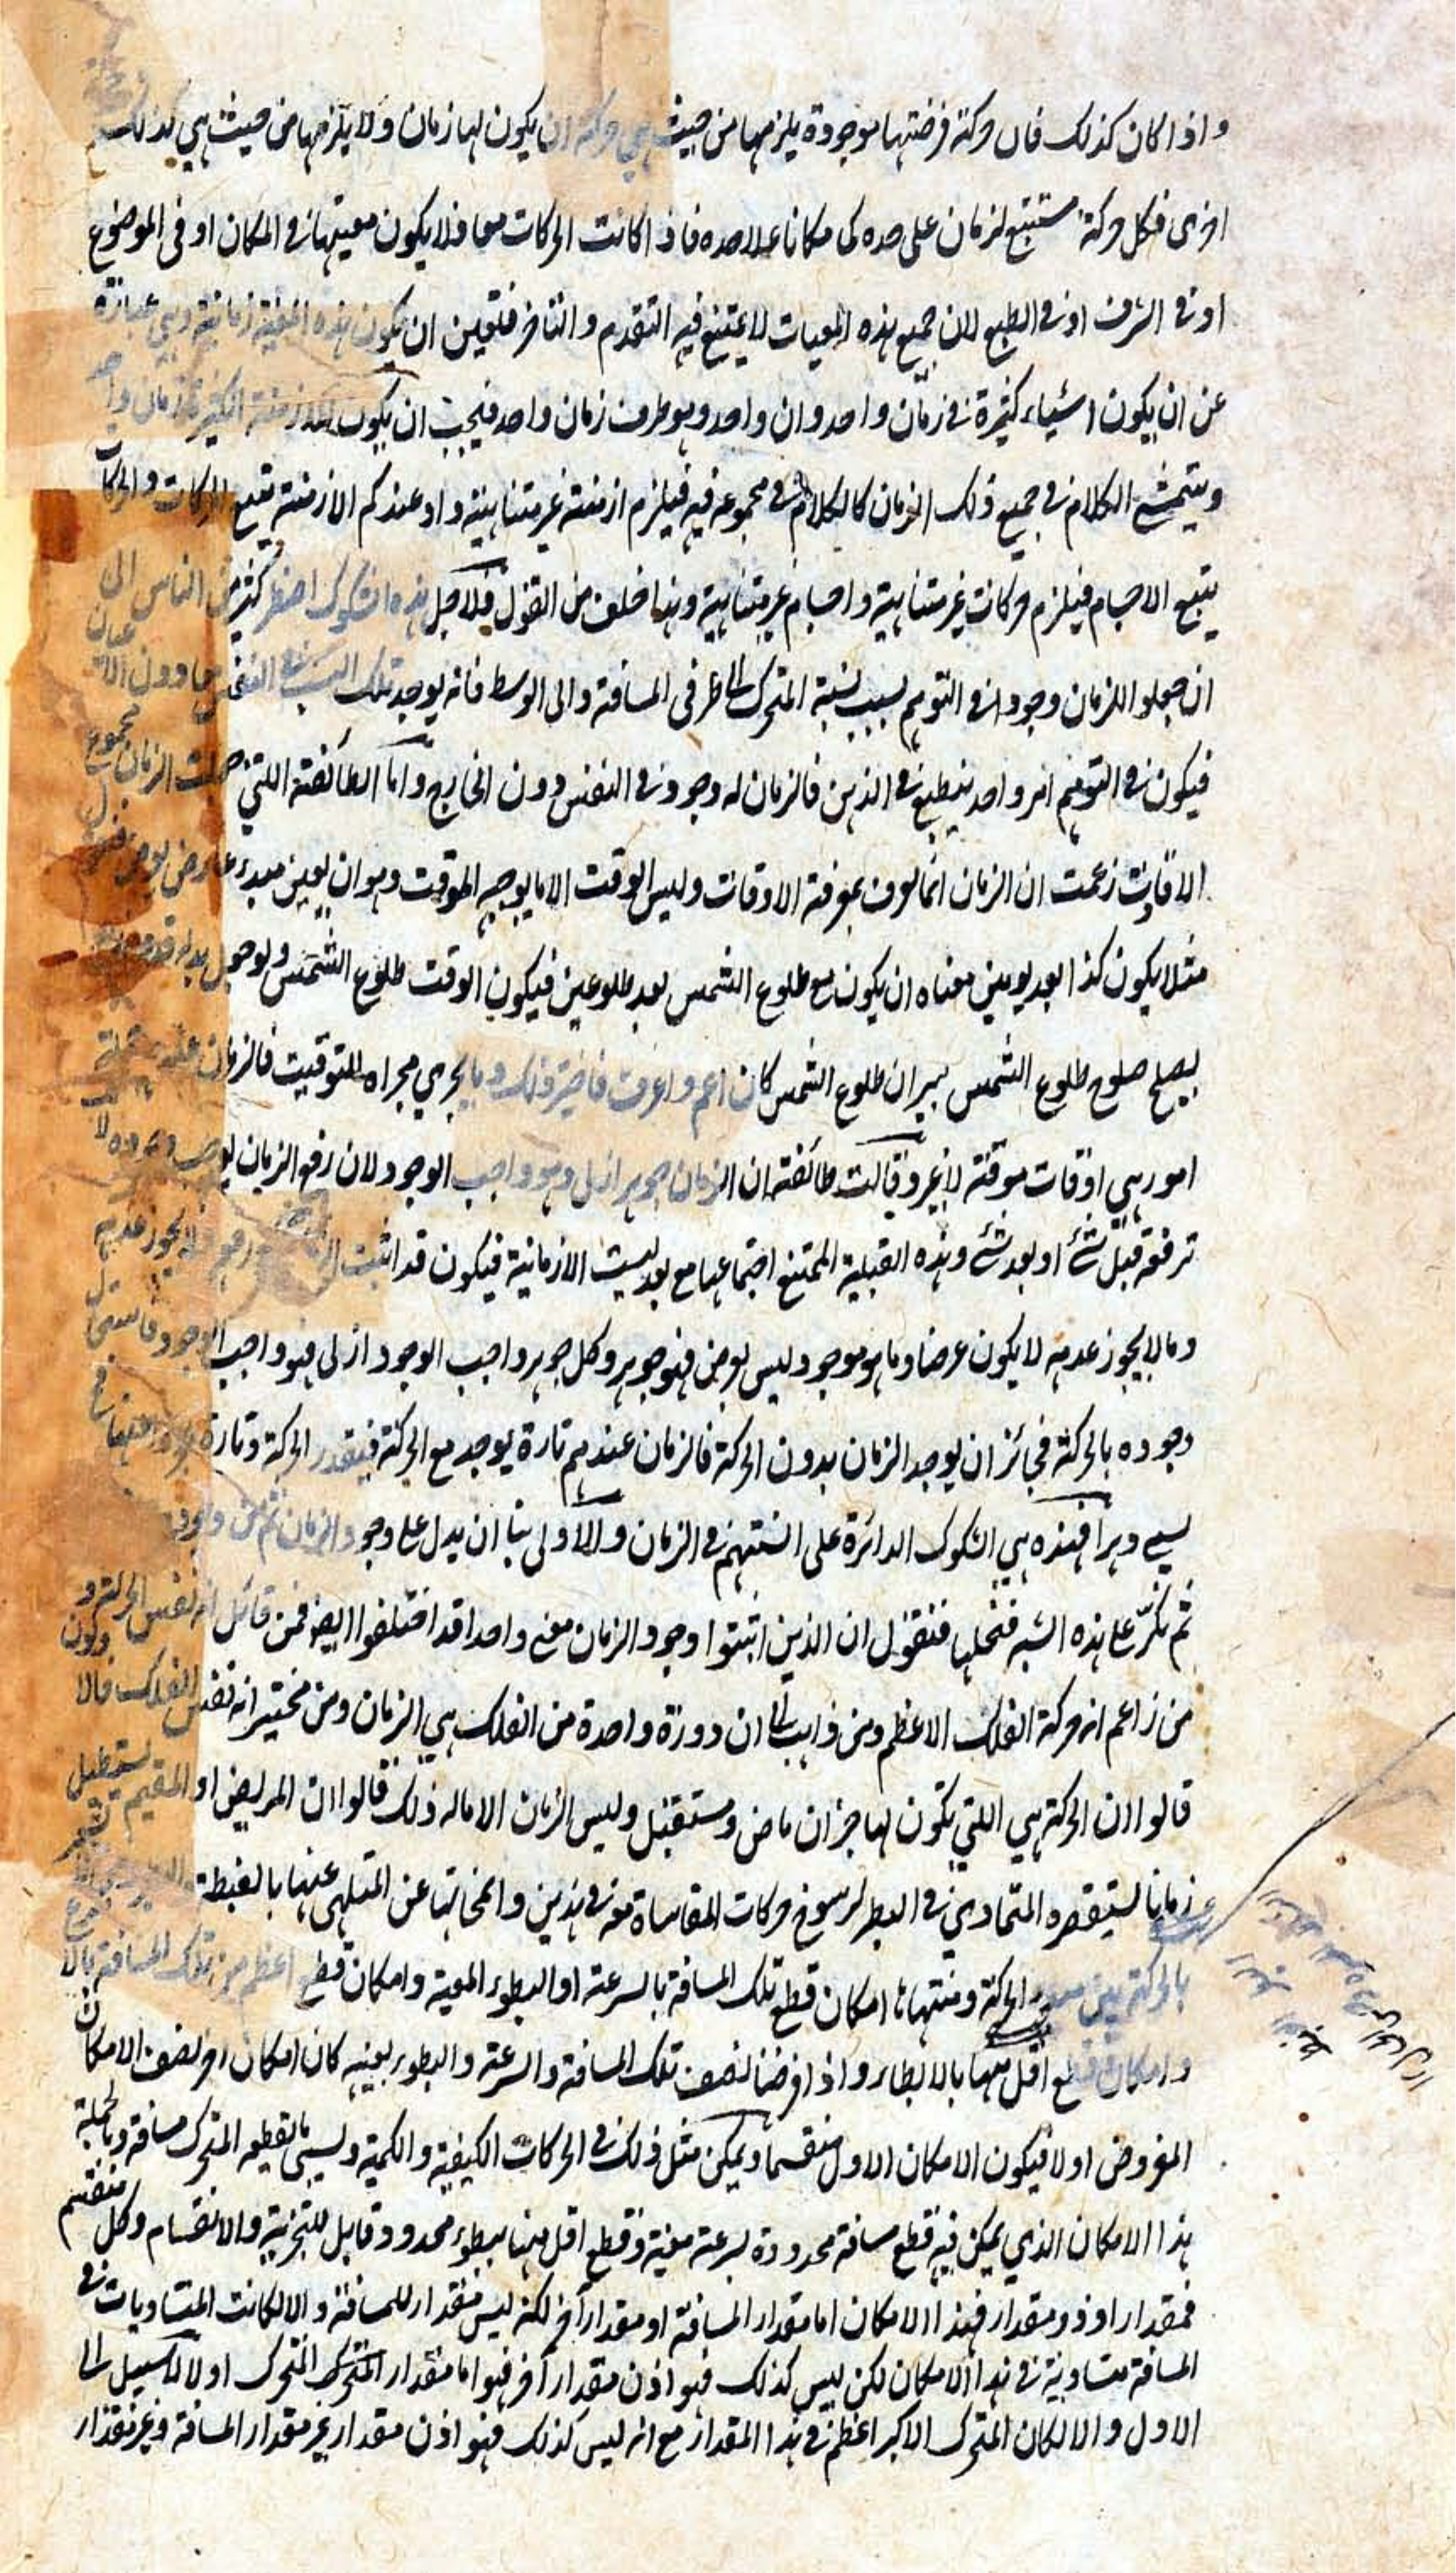 واذا كان كذلك فان حركة فرضتها موجودة يلزمها من حيث هي حركة ان يكون لها زمان ولا يلزمها من حيث هي كذلك
اخرى فكل حركة مستتبع لزمان على حده كما مكانا علاحده فاذا كانت الحركات معا فلا يكون معيتها في المكان او في الموضوع
او في الشرف او في الطبع لان جميع هذه المعيات لا يمتنع فيه التقدم والتاخر فتعين ان يكون هذه المعية زمانية وهي عبارة
عن ان يكون اشياء كثيرة في زمان واحد وان واحد وهو طرف زمان واحد فيجب ان يكون للازمنة الكثيرة زمان واحد
ويتمشى الكلام في جميع ذلك الزمان كالكلام في مجموعه فيه فيلزم ازمنة غير متناهية واذ عندكم الازمنة يتبع الحركات والحركات
يتبع الاجسام فيلزم حركات غير متناهية واجسام غير متناهية وهذا خلف من القول فلاجل هذه الشكوك اضطر كثير من الناس الى
ان جعلوا للزمان وجودا في التوهم بسبب نسبة المتحرك الى طرفي المسافة والى الوسط فانه يوجد تلك النسب في النفس معا دون الاعيان
فيكون في التوهم امر واحد ينطبع في الذهن فالزمان له وجود في النفس دون الخارج واما الطائفة اللتي جعلت الزمان مجموع
الاقات زعمت ان الزمان انما يعرف بمعرفة الاوقات وليس الوقت الا ما يوجبه الموقت وهو ان يعين مبدء عارض يعرض
مثلا يكون كذا بعد يومين معناه ان يكون مع طلوع الشمس بعد طلوعين فيكون الوقت طلوع الشمس ولو جعل بدله قدوم زيد
يصلح صلوح طلوع الشمس بيد ان طلوع الشمس كان اعم واعرف فاختير ذلك وما يجري مجراه للتوقيت فالزمان عندهم جملة
امور هي اوقات موقتة لا غير وقالت طائفة ان الزمان جوهر ازلي وهو واجب الوجود لان رفع الزمان يوجب وجوده لا
ترفعه قبل شئ او بعد شئ وهذه القبلية الممتنع اجتماعها مع بعد ليست الا زمانية فيكون قد اثبت الزمان مع رفعه فلا يجوز عدمه
وما لا يجوز عدمه لا يكون عرضا وما هو موجود وليس بعرض فهو جوهر وكل جوهر واجب الوجود ازلي فهو واجب الوجود
وجوده بالحركة فجائز ان يوجد الزمان بدون الحركة فالزمان عندهم تارة يوجد مع الحركة فيقدر الحركة وتارة
يسمى دهرا فهذه هي الشكوك الدائرة على السنتهم في الزمان والاولى بنا ان يدل على وجود الزمان
ثم نكر على هذه الشبه فنحلها فنقول ان الذين اثبتوا وجود الزمان معنى واحدا قد اختلفوا ايضا فمن قائل انه نفس الحركة و
من زاعم انه حركة الفلك الاعظم ومن ذاهب الى ان دورة واحدة من الفلك هي الزمان ومن مختير انه نفس الفلك فالا
قالوا ان الحركة هي اللتي يكون لها جزآن ماض ومستقبل وليس الزمان الا ما له ذلك قالوا ان المريض او المقيم يستطيل
زمانا يستقصره المتمادي في البطر لرسوخ حركات المقاساة مع في هذين وانمحائها عن المتلهي عنها بالغبطة
بالحركة بين مبدء الحركة ومنتهاها امكان قطع تلك المسافة بالسرعة او البطوء المعينة وامكان قطع اعظم من تلك المسافة بالا
وامكان قطع اقل منها بالابطاء واذا فرضنا نصف تلك المسافة والسرعة والبطوء بعينه كان امكان اخر نصف الامكان
المفروض اولا فيكون الامكان الاول منقسما ويمكن مثل ذلك في الحركات الكيفية والكمية وليسمى ما يقطعه المتحرك مسافة وبالجملة
هذا الامكان الذي يمكن فيه قطع مسافة محدودة بسرعة معينة وقطع اقل منها ببطوء محدود قابل للتجزية والانقسام وكل منقسم
فمقدار او ذو مقدار فهذا الامكان اما مقدار المسافة او مقدار آخر لكنه ليس مقدار للمسافة والا لكانت المتساويات في
المسافة متساوية في هذا الامكان لكن ليس كذلك فهو اذن مقدار آخر فهو اما مقدار المتحرك المتحرك اولا لا سبيل الى
الاول والا لكان المتحرك الاكبر اعظم في هذا المقدار مع انه ليس كذلك فهو اذن مقدار غير مقدار المسافة وغير مقدار